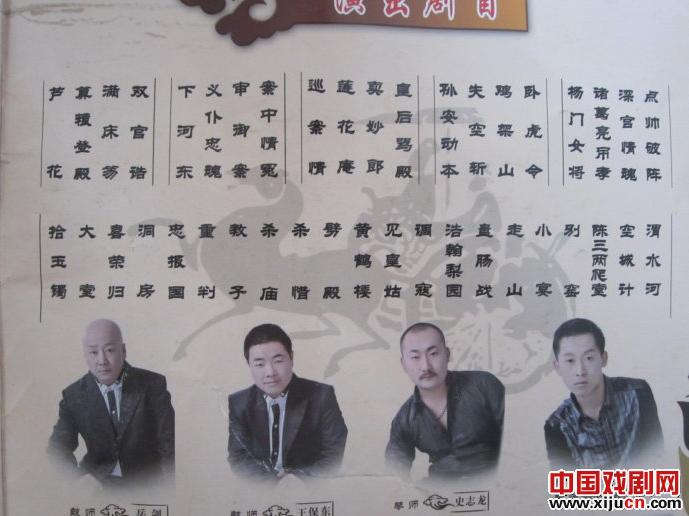 演出剧目
点帅破阵
深宫情魂
诸葛亮吊孝
杨门女将
卧虎令
鸡架山
失空斩
孙安动本
皇后骂殿
卖妙郎
莲花庵
巡案情
案中情冤
审御案
义仆忠魂
下河东
双官诰
满床笏
算粮登殿
芦花
渭水河
空城计
陈三两爬堂
别窑
小宴
走山
盘肠战
浩翰梨园
调寇
见皇姑
黄鹤楼
劈殿
杀惜
杀庙
教子
重判
忠报国
洞房
喜荣归
大堂
拾玉镯
鼓师
鼓师 王保东
琴师 史志龙
中国戏剧网
www.xijucn.com